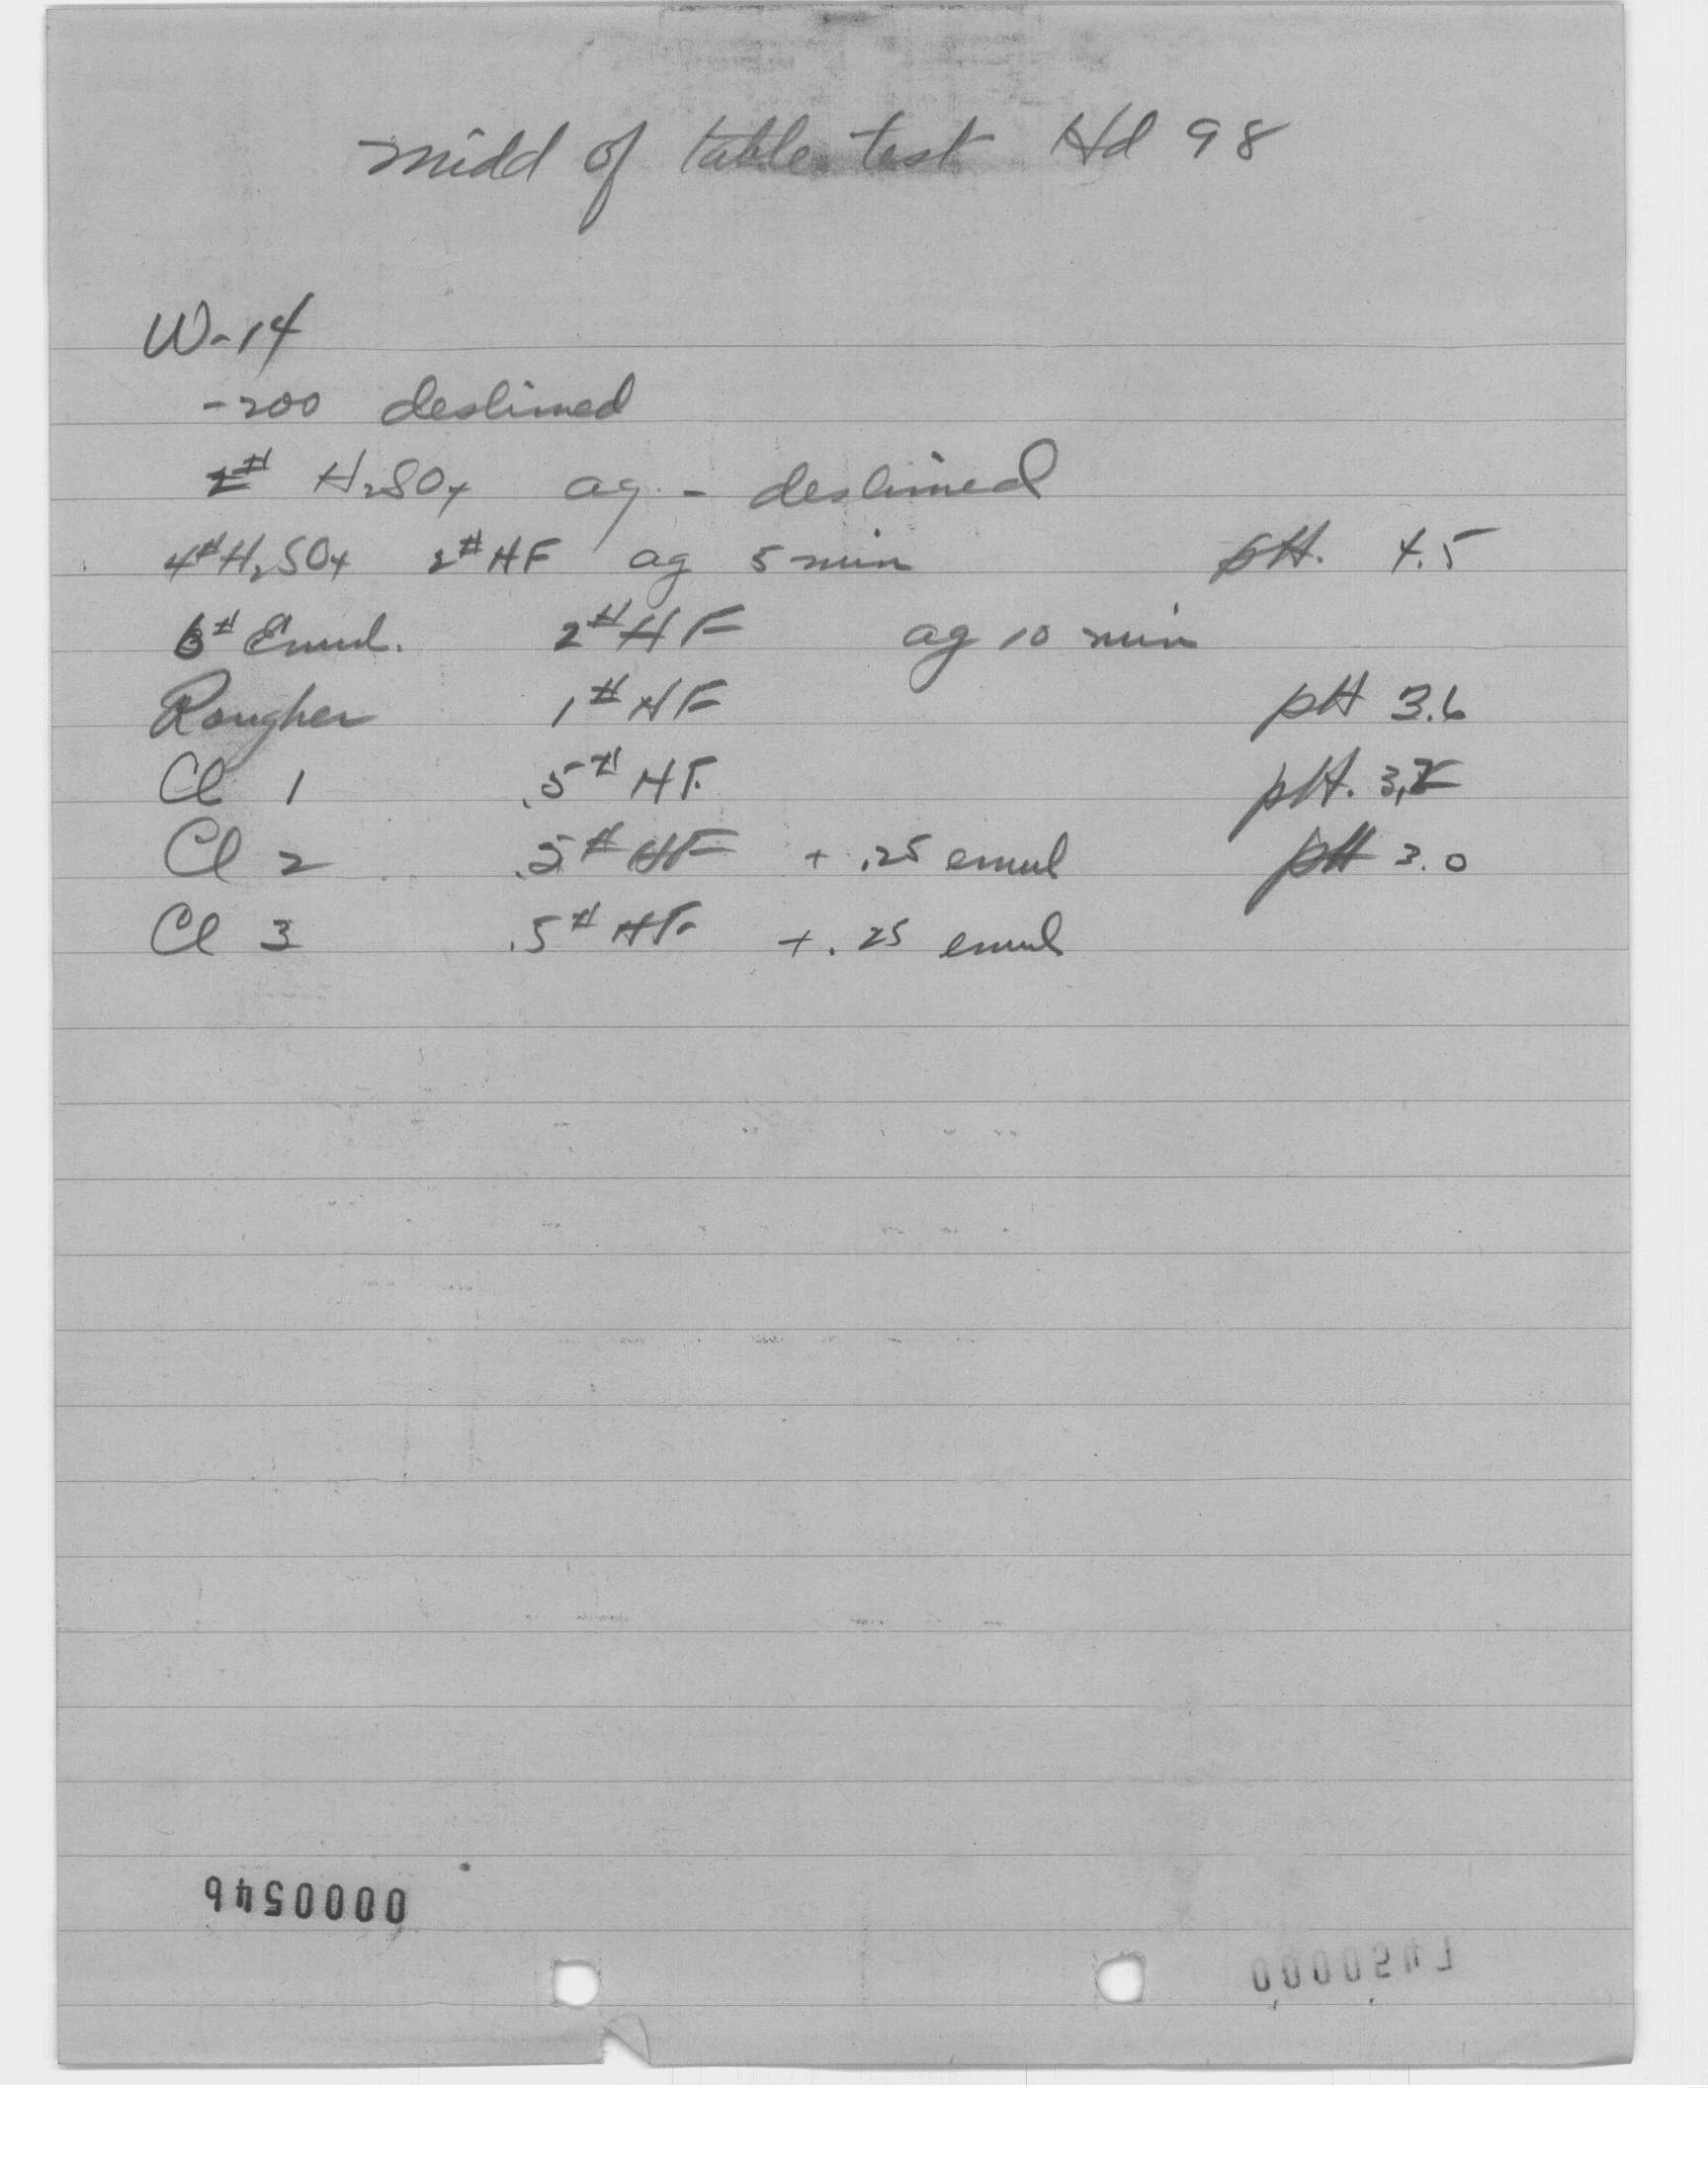 Midd of table test Hd 98
W-14
-200 deslimed
2# H2SO4 ag. - deslimed
4# H2SO4 2# HF ag 5 min pH. 4.5
6# Emul. 2# HF ag 10 min
Rougher 1# HF pH 3.6
Cl 1 .5# HF. pH. 3.2
Cl 2 .5# HF + .25 emul pH 3.0
Cl 3 .5# HF. + .25 emul
0000546
0000547